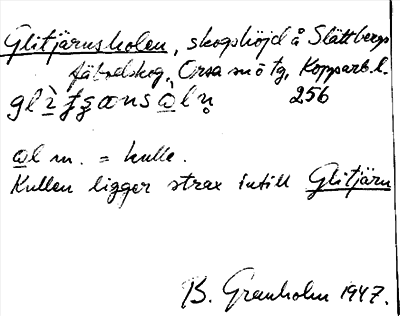 Glitjärnsholen, skogshöjd å Slättbergs
fäbodskog, Orsa sn ö tg, Kopparb.l.
256
ol m. = kulle.
Kullen ligger strax intill Glitjärn
B. Granholm 1947.